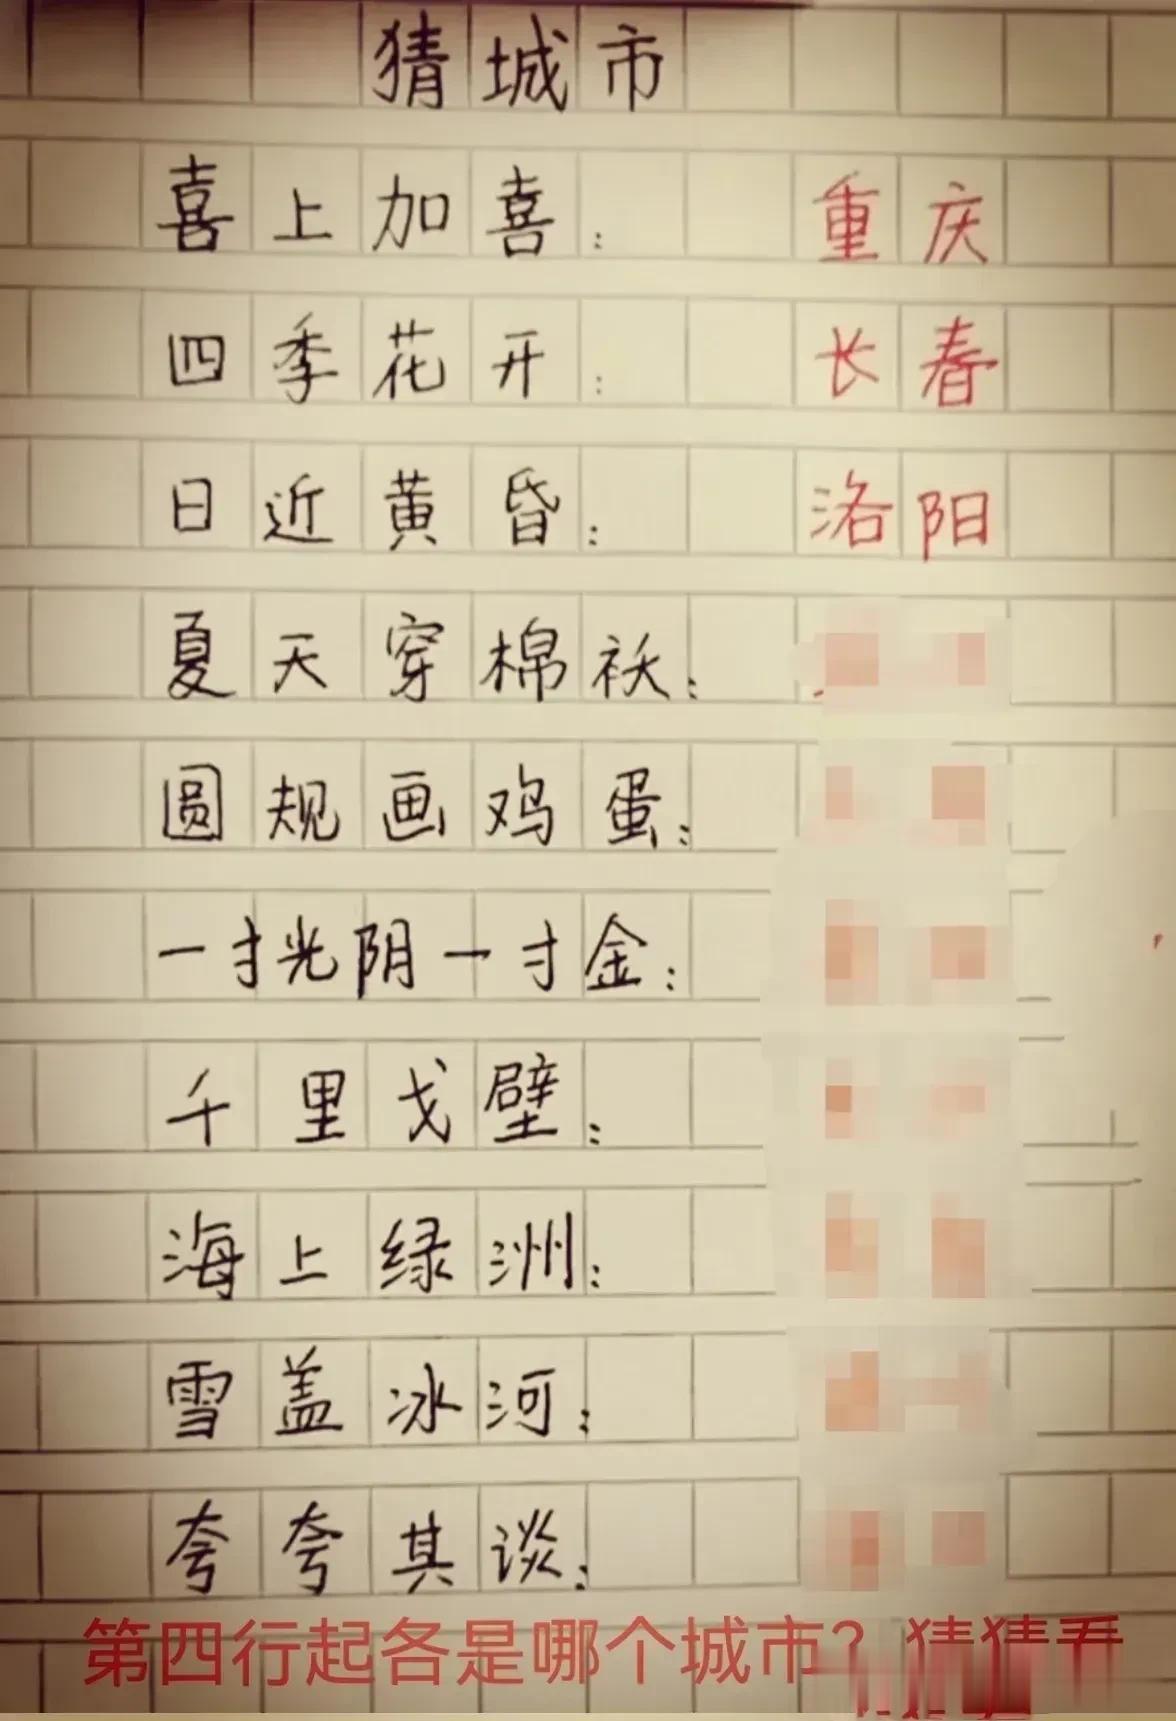 猜城市
喜上加喜： 重庆
四季花开： 长春
日近黄昏： 洛阳
夏天穿棉袄：
圆规画鸡蛋：
一寸光阴一寸金：
千里戈壁：
海上绿洲：
雪盖冰河：
夸夸其谈：
第四行起各是哪个城市？猜猜看